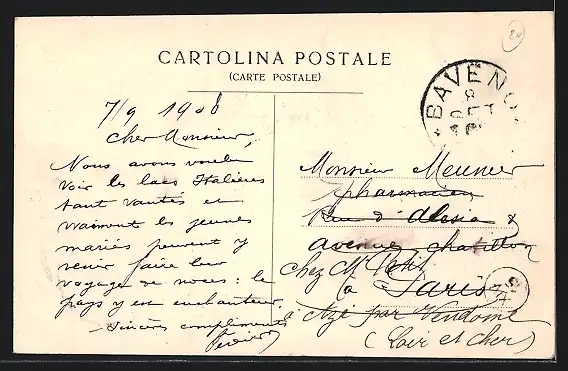 CARTOLINA POSTALE
(CARTE POSTALE)
BAVENO
8
SET
20
7/9 1908
Cher Monsieur,
Nous avons voulu
voir les lacs Italiens
tant vantés et
vraiment les jeunes
mariés peuvent y
venir faire leur
voyage de noces : le
pays y est enchanteur.
Sincères compliments
Monsieur Meunier
pharmacien
Rue d'Alesia &
avenue chatillon
chez Mr Petit
à Paris
à Azé par Vendome
(Loir et Cher)